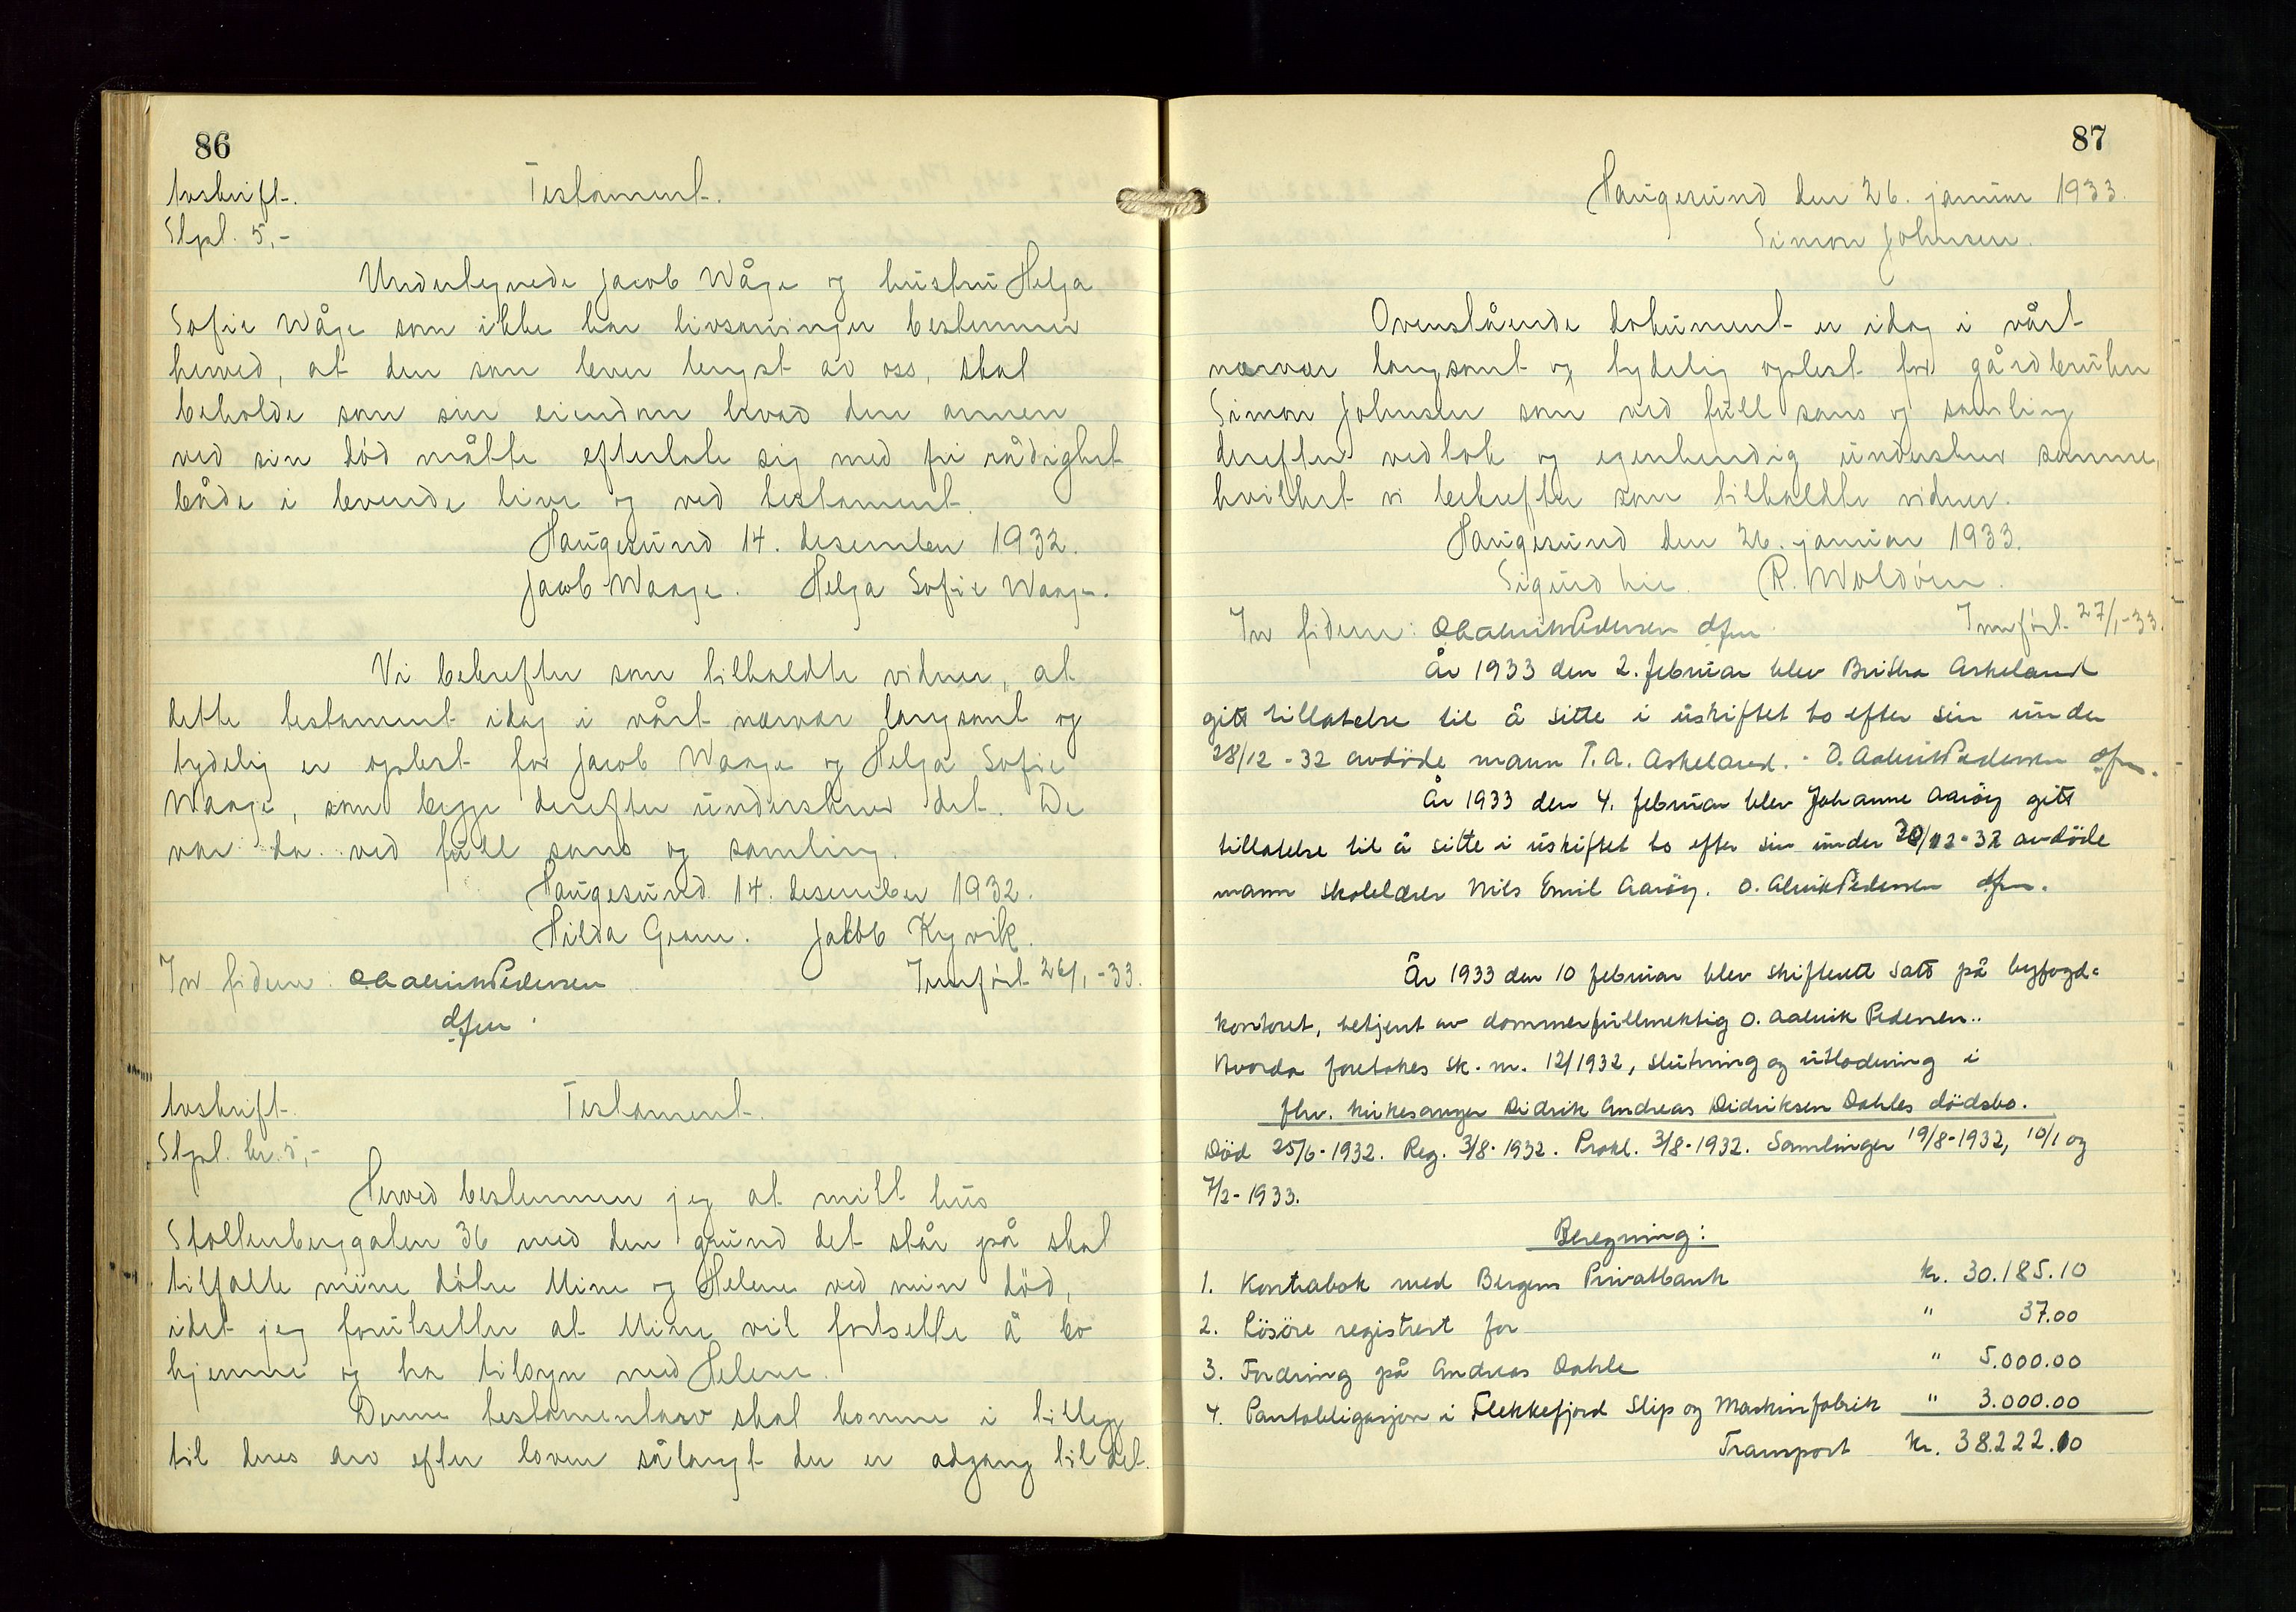 86
Avskrift.
Testament.
Stpl. 5,-
Undertegnede Jacob Wåge og hustru Helga
Sofie Wåge som ikke har livsarvinger bestemmer
herved, at den som lever lengst av oss, skal
beholde som sin eiendom hvad den annen
ved sin död måtte efterlate sig med fri rådighet
både i levende live og ved testament.
Haugesund 14. desember 1932.
Jacob Waage. Helga Sofie Waage.
Vi bekrefter som tilkaldte vidner, at
dette testament idag i vårt nærvær langsomt og
tydelig er oplest for Jacob Waage og Helga Sofie
Waage, som begge derefter underskrev det. De
var da ved full sans og samling.
Haugesund 14. desember 1932.
Hilda Gram. Jakob Kyvik.
In fidem: O. Aalvik Pedersen
Innfört 26/1-33.
dfm.
Avskrift.
Testament.
Stpl. kr. 5,-
Herved bestemmer jeg at mitt hus
Stoltenberggaten 36 med den grund det står på skal
tilfalle mine dötre Mine og Helene ved min död,
idet jeg forutsetter at Mine vil fortsette å bo
hjemme og ha tilsyn med Helene.
Denne testamentarv skal komme i tillegg
til deres arv efter loven sålangt der er adgang til det.
87
Haugesund den 26. januar 1933.
Simon Johnsen.
Ovenstående dokument er idag i vårt
nærvær langsomt og tydelig oplest for gårdbruker
Simon Johnsen som ved full sans og samling
derefter vedtok og egenhendig underskrev samme,
hvilket vi bekrefter som tilkaldte vidner.
Haugesund den 26. januar 1933.
Sigurd Lie. R. Woldöen.
In fidem: O. Aalvik Pedersen dfm.
Innfört 27/1-33.
År 1933 den 2. februar blev Britha Askeland
gitt tillatelse til å sitte i uskiftet bo efter sin under
28/12-32 avdöde mann T. A. Askeland. - O. Aalvik Pedersen dfm.
År 1933 den 4. februar blev Johanne Aaröy gitt
tillatelse til å sitte i uskiftet bo efter sin under 30/12-32 avdöde
mann skolelærer Nils Emil Aaröy. O. Alvik Pedersen dfm.
År 1933 den 10 februar blev skifterett satt på byfogd=
kontoret, betjent av dommerfullmektig O. Aalvik Pedersen..
Hvorda foretokes sk. nr. 12/1932, slutning og utlodning i
fhv. kirkesanger Didrik Andreas Didriksen Dahles dödsbo.
Död 25/6-1932. Reg. 3/8-1932. Prokl. 3/8-1932. Samlinger 19/8-1932, 10/1 og
7/2-1933.
Beregning:
1. Kontrabok med Bergens Privatbank kr. 30.185.10
2. Lösöre registrert for " 37.00
3. Fordring på Andreas Dahle " 5.000.00
4. Pantobligasjon i Flekkefjord Slip og Maskinfabrik " 3.000.00
Transport kr. 38.222.10